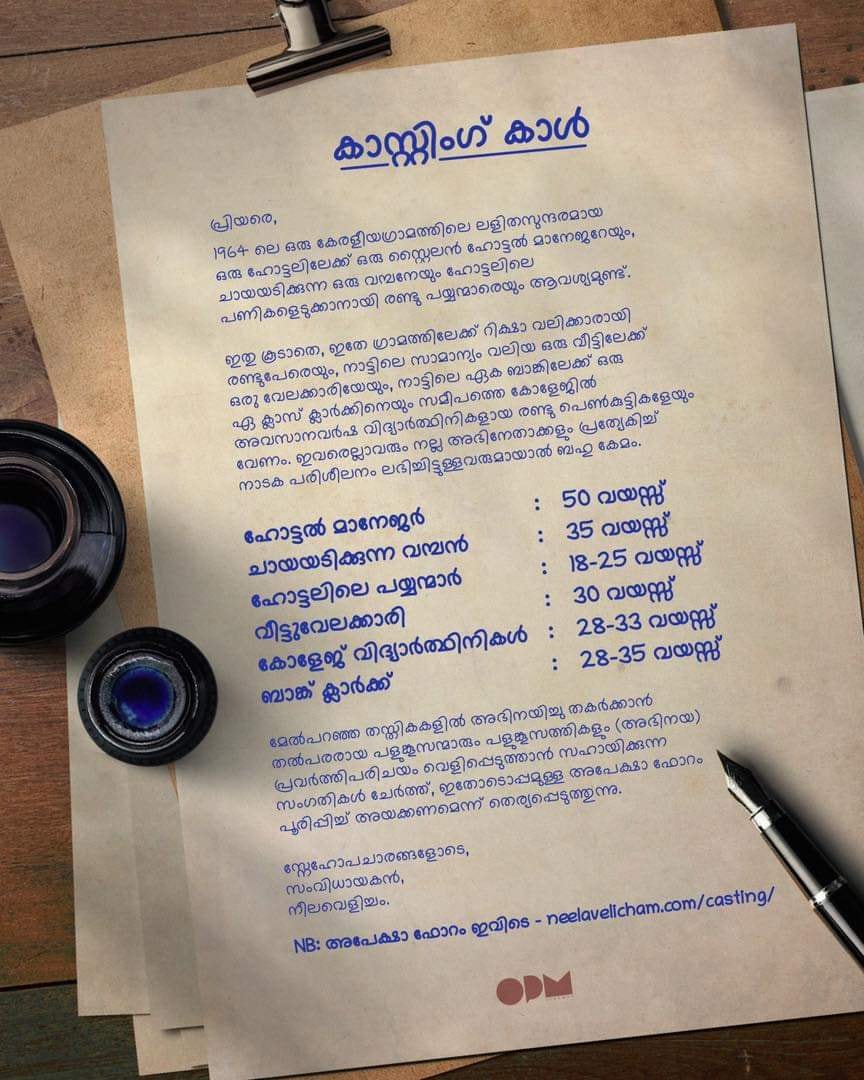 കാസ്റ്റിംഗ് കാൾ
പ്രിയരെ,
1964 ലെ ഒരു കേരളീയഗ്രാമത്തിലെ ലളിതസുന്ദരമായ
ഒരു ഹോട്ടലിലേക്ക് ഒരു സ്റ്റൈലൻ ഹോട്ടൽ മാനേജറേയും,
ചായയടിക്കുന്ന ഒരു വമ്പനേയും ഹോട്ടലിലെ
പണികളെടുക്കാനായി രണ്ടു പയ്യന്മാരെയും ആവശ്യമുണ്ട്.
ഇതു കൂടാതെ, ഇതേ ഗ്രാമത്തിലേക്ക് റിക്ഷാ വലിക്കാരായി
രണ്ടുപേരെയും, നാട്ടിലെ സാമാന്യം വലിയ ഒരു വീട്ടിലേക്ക്
ഒരു വേലക്കാരിയേയും, നാട്ടിലെ ഏക ബാങ്കിലേക്ക് ഒരു
ഏ ക്ലാസ് ക്ലാർക്കിനെയും സമീപത്തെ കോളേജിൽ
അവസാനവർഷ വിദ്യാർത്ഥിനികളായ രണ്ടു പെൺകുട്ടികളേയും
വേണം. ഇവരെല്ലാവരും നല്ല അഭിനേതാക്കളും പ്രത്യേകിച്ച്
നാടക പരിശീലനം ലഭിച്ചിട്ടുള്ളവരുമായാൽ ബഹു കേമം.
ഹോട്ടൽ മാനേജർ : 50 വയസ്സ്
ചായയടിക്കുന്ന വമ്പൻ : 35 വയസ്സ്
ഹോട്ടലിലെ പയ്യന്മാർ : 18-25 വയസ്സ്
വീട്ടുവേലക്കാരി : 30 വയസ്സ്
കോളേജ് വിദ്യാർത്ഥിനികൾ : 28-33 വയസ്സ്
ബാങ്ക് ക്ലാർക്ക് : 28-35 വയസ്സ്
മേൽപറഞ്ഞ തസ്തികകളിൽ അഭിനയിച്ചു തകർക്കാൻ
തൽപരരായ പളുങ്കൂസന്മാരും പളുങ്കൂസത്തികളും (അഭിനയ)
പ്രവർത്തിപരിചയം വെളിപ്പെടുത്താൻ സഹായിക്കുന്ന
സംഗതികൾ ചേർത്ത്, ഇതോടൊപ്പമുള്ള അപേക്ഷാ ഫോറം
പൂരിപ്പിച്ച് അയക്കണമെന്ന് തെര്യപ്പെടുത്തുന്നു.
സ്നേഹോപചാരങ്ങളോടെ,
സംവിധായകൻ,
നീലവെളിച്ചം.
NB: അപേക്ഷാ ഫോറം ഇവിടെ - neelavelicham.com/casting/
OPM